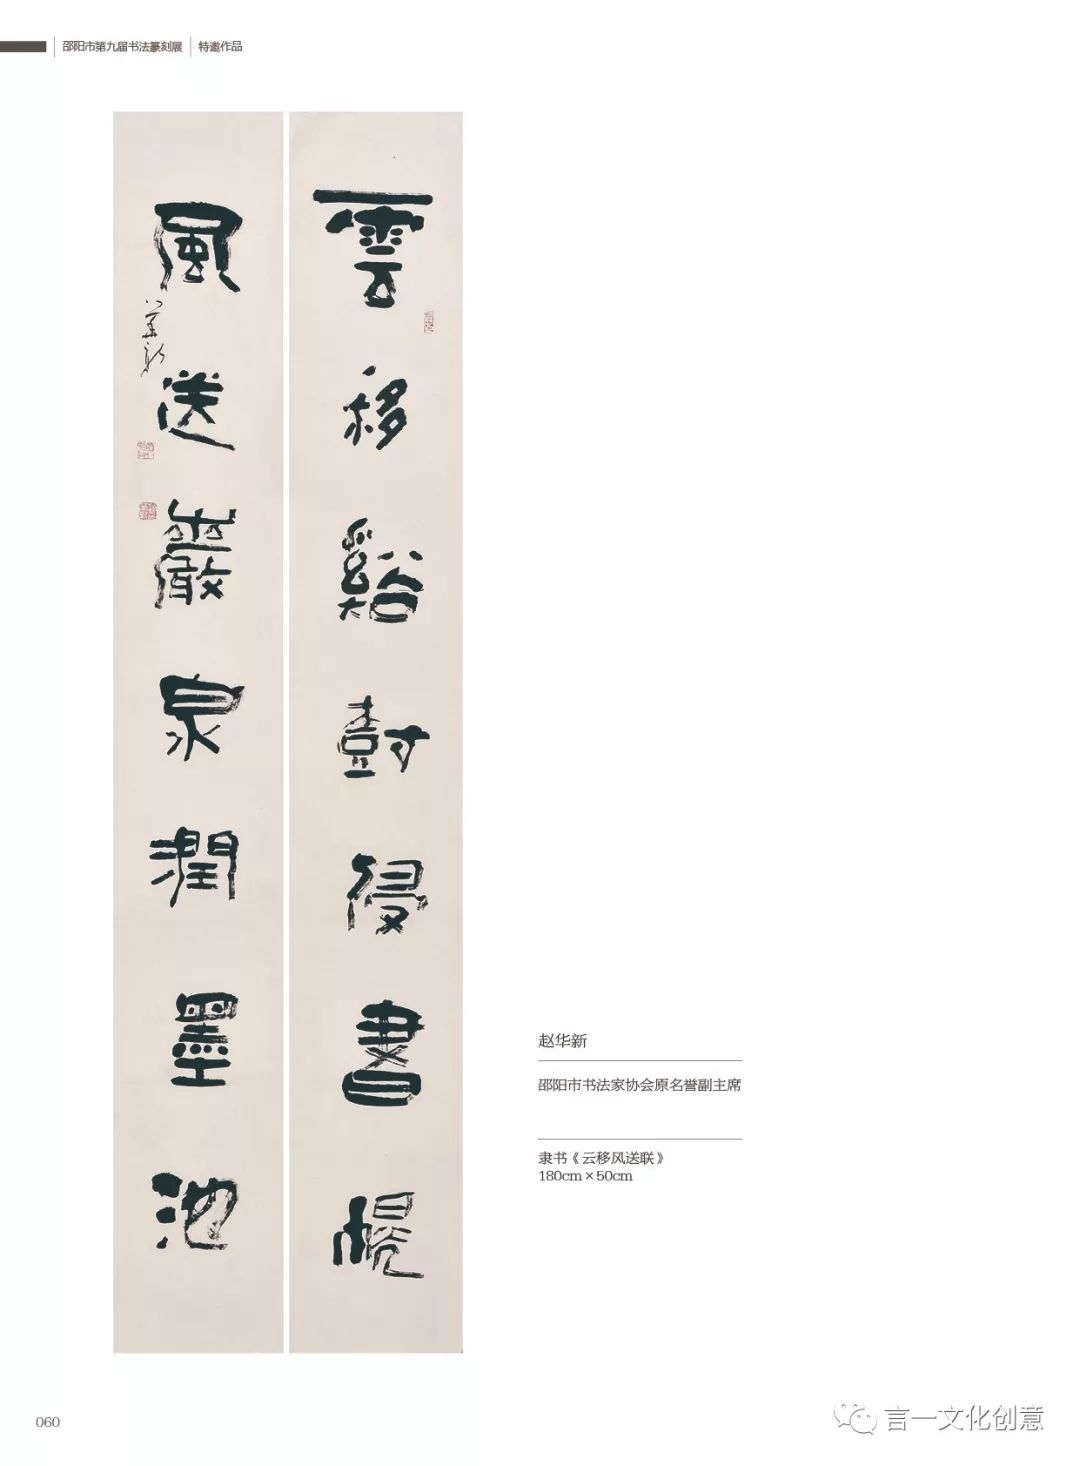 邵阳市第九届书法篆刻展 特邀作品
雲移谿樹侵書幌
風送巖泉潤墨池
華新
赵华新
邵阳市书法家协会原名誉副主席
隶书《云移风送联》
180cm×50cm
060
言一文化创意